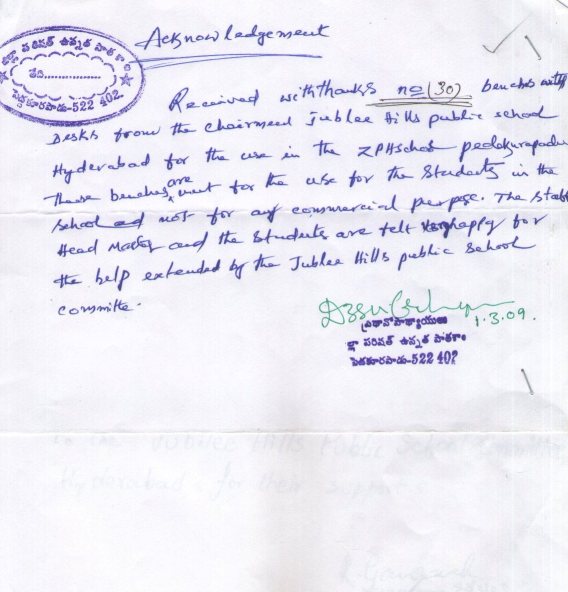 Acknowledgement
జిల్లా పరిషత్ ఉన్నత పాఠశాల
తేది..............
పెదకూరపాడు-522 402.
Received with thanks no (30) benches with
Desks from the Chairmen Jublee Hills public school
Hyderabad for the use in the ZPHSchool pedakurapadu
These benches are ment for the use for the Students in the
School and not for any commercial perpose. The Staff
Head Master and the Students are felt very happy for
the help extended by the Jublee Hills public School
committe.
1.3.09.
ప్రధానోపాధ్యాయులు
జిల్లా పరిషత్ ఉన్నత పాఠశాల
పెదకూరపాడు-522 402
to the Jubilee Hills Public School Committee
Hyderabad for their